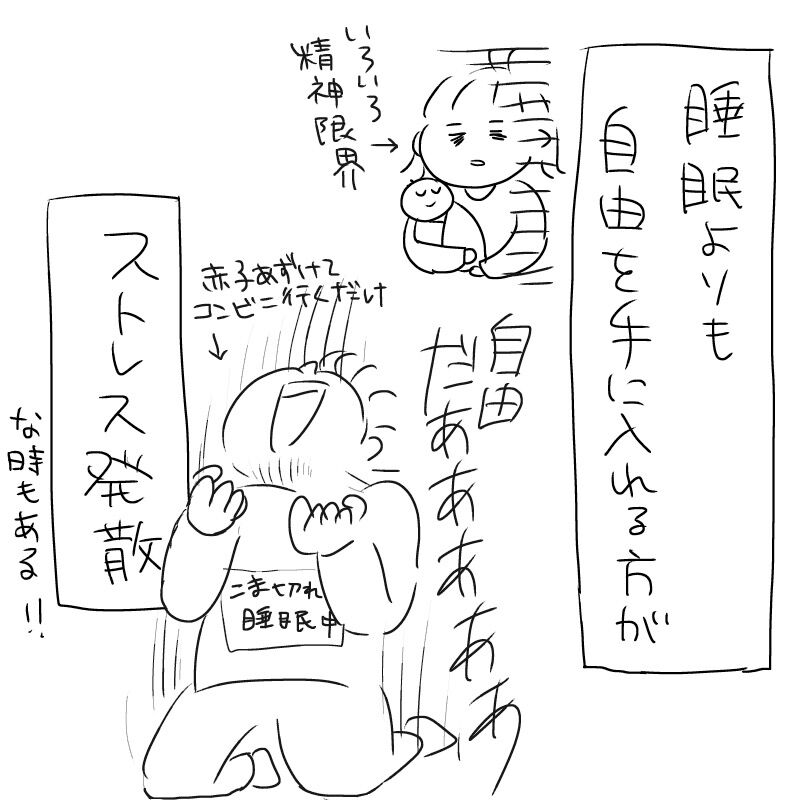 睡眠よりも
自由を手に入れる方が
いろいろ
精神限界
自由
だぁああああ
赤子あずけて
コンビニ行くだけ
こま切れ
睡眠中
ストレス発散
な時もある!!